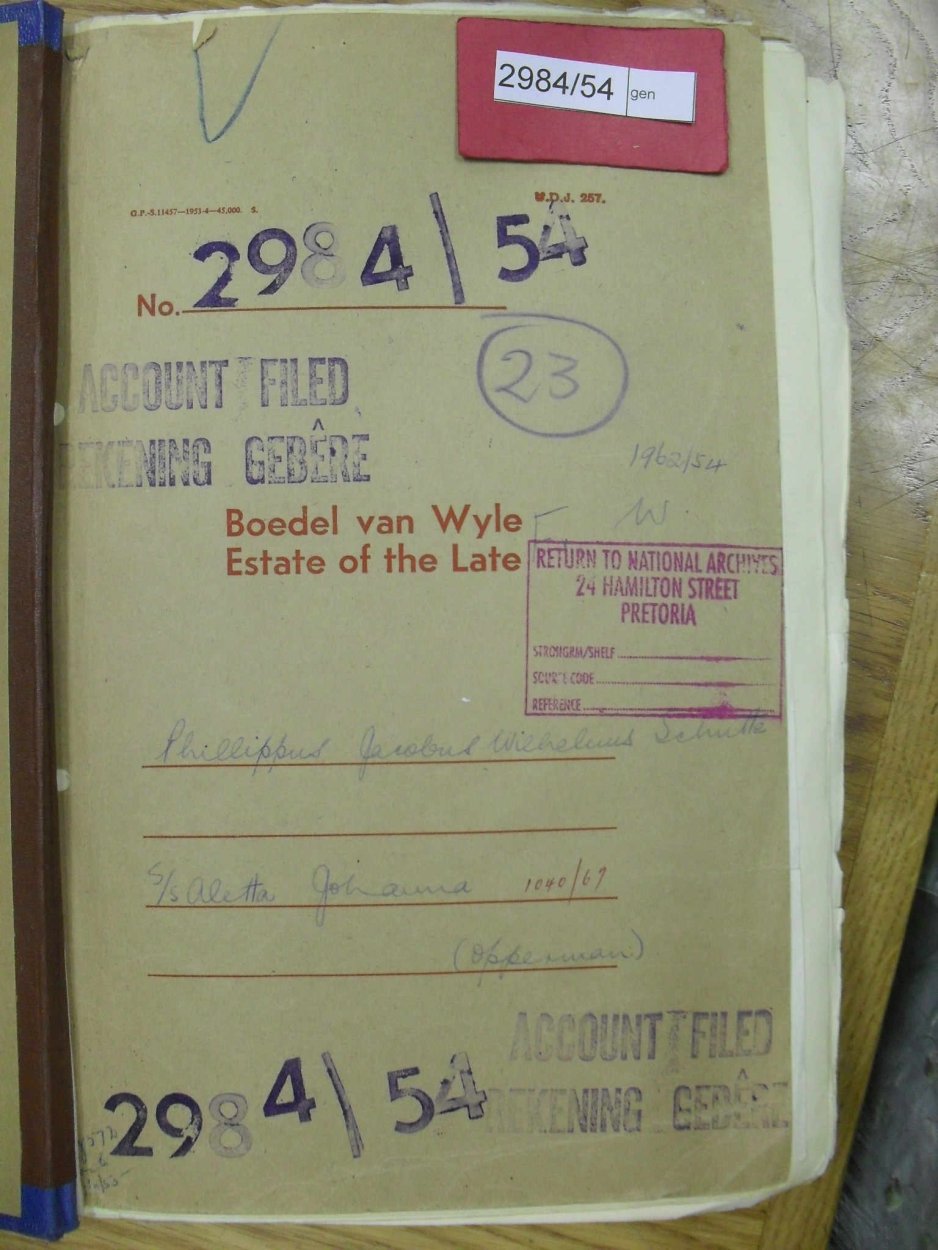 2984/54 gen
G.P.-S.11457—1953-4—45,000. S.
D.J. 257.
No. 2984/54
23
ACCOUNT FILED
REKENING GEBÊRE
1962/54
W.
Boedel van Wyle
Estate of the Late
RETURN TO NATIONAL ARCHIVES
24 HAMILTON STREET
PRETORIA
STRONGRM/SHELF
SOURCE CODE
REFERENCE
Phillippus Jacobus Wilhelmus Schutte
S/s Aletta Johanna 1040/67
(Opperman)
ACCOUNT FILED
REKENING GEBÊRE
2984/54